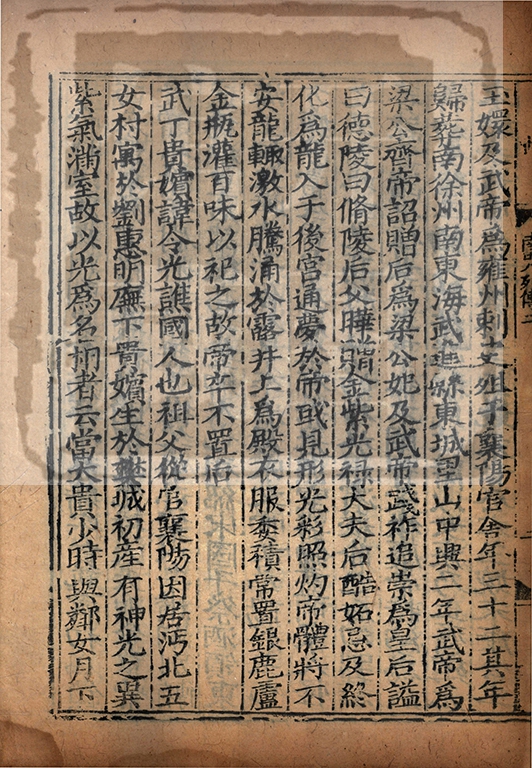 玉嬛及武帝爲雍州刺史殂于襄陽官舎年三十二其年
歸葬南徐州南東海武進縣東城里山中興二年武帝爲
梁公齊帝詔贈后爲梁公妃及武帝踐祚追崇爲皇后謚
曰德陵曰脩陵后父曄贈金紫光禄大夫后酷妬忌及終
化爲龍入于後宮通夢於帝或見形光彩照灼帝體將不
安龍輒激水騰涌於露井上爲殿衣服委積常置銀鹿盧
金瓶灌百味以祀之故帝卒不置后
武丁貴嬪諱令光譙國人也祖父從官襄陽因居沔北五
女村寓於劉惠明廡下貴嬪生於樊城初産有神光之異
紫氣滿室故以光爲名相者云當大貴少時與鄰女月下